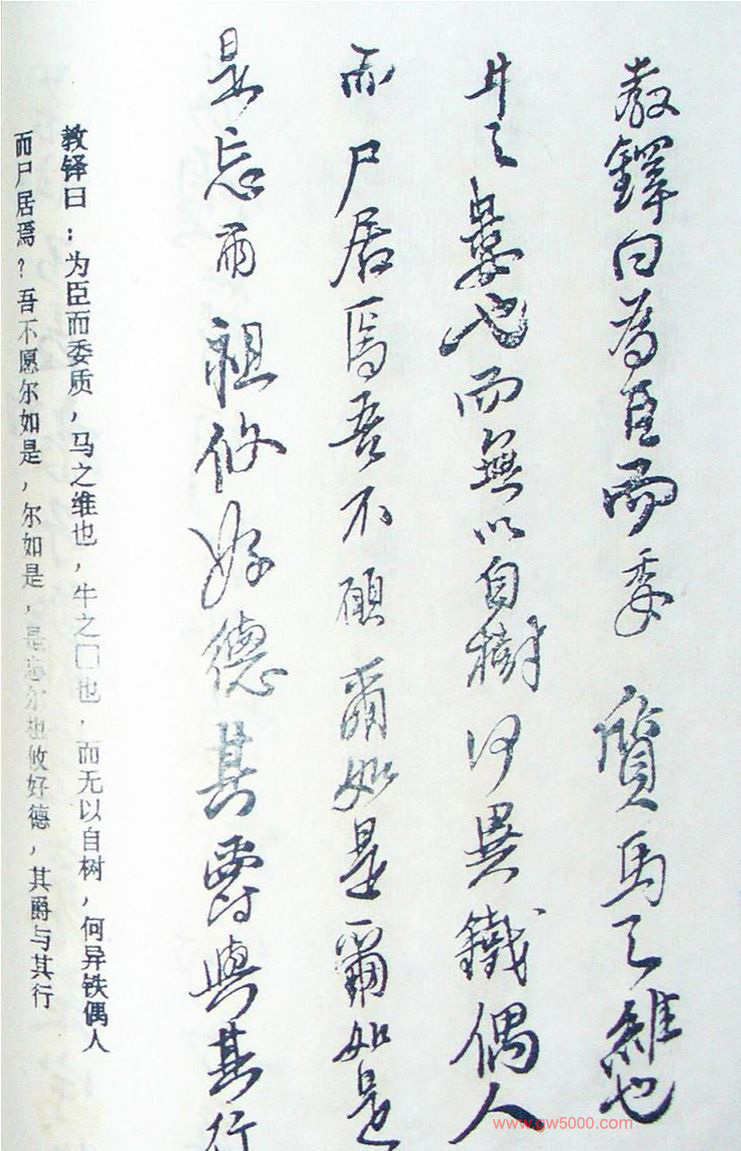 教鐸曰為臣而委質馬之維也
牛之也而無以自樹何異鐵偶人
而尸居焉吾不願爾如是爾如是
是忘爾祖攸好德其爵與其行
教铎曰：为臣而委质，马之维也，牛之□也，而无以自树，何异铁偶人
而尸居焉？吾不愿尔如是，尔如是，是忘尔祖攸好德，其爵与其行
www.gw5000.com